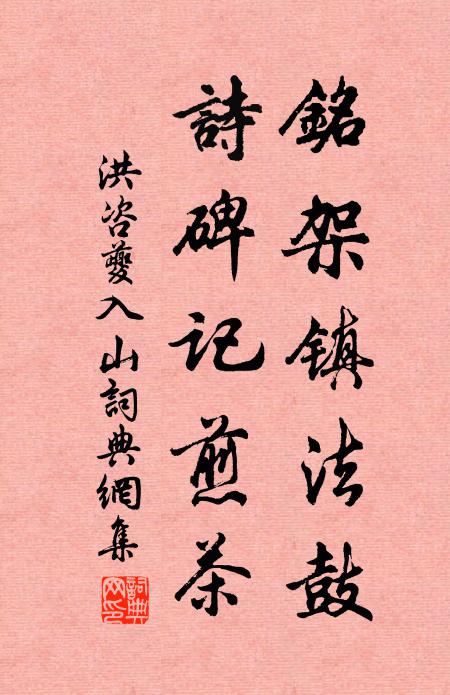 銘架镇法鼓
詩碑記煎茶
洪咨夔入山詞典網集
詞典网印